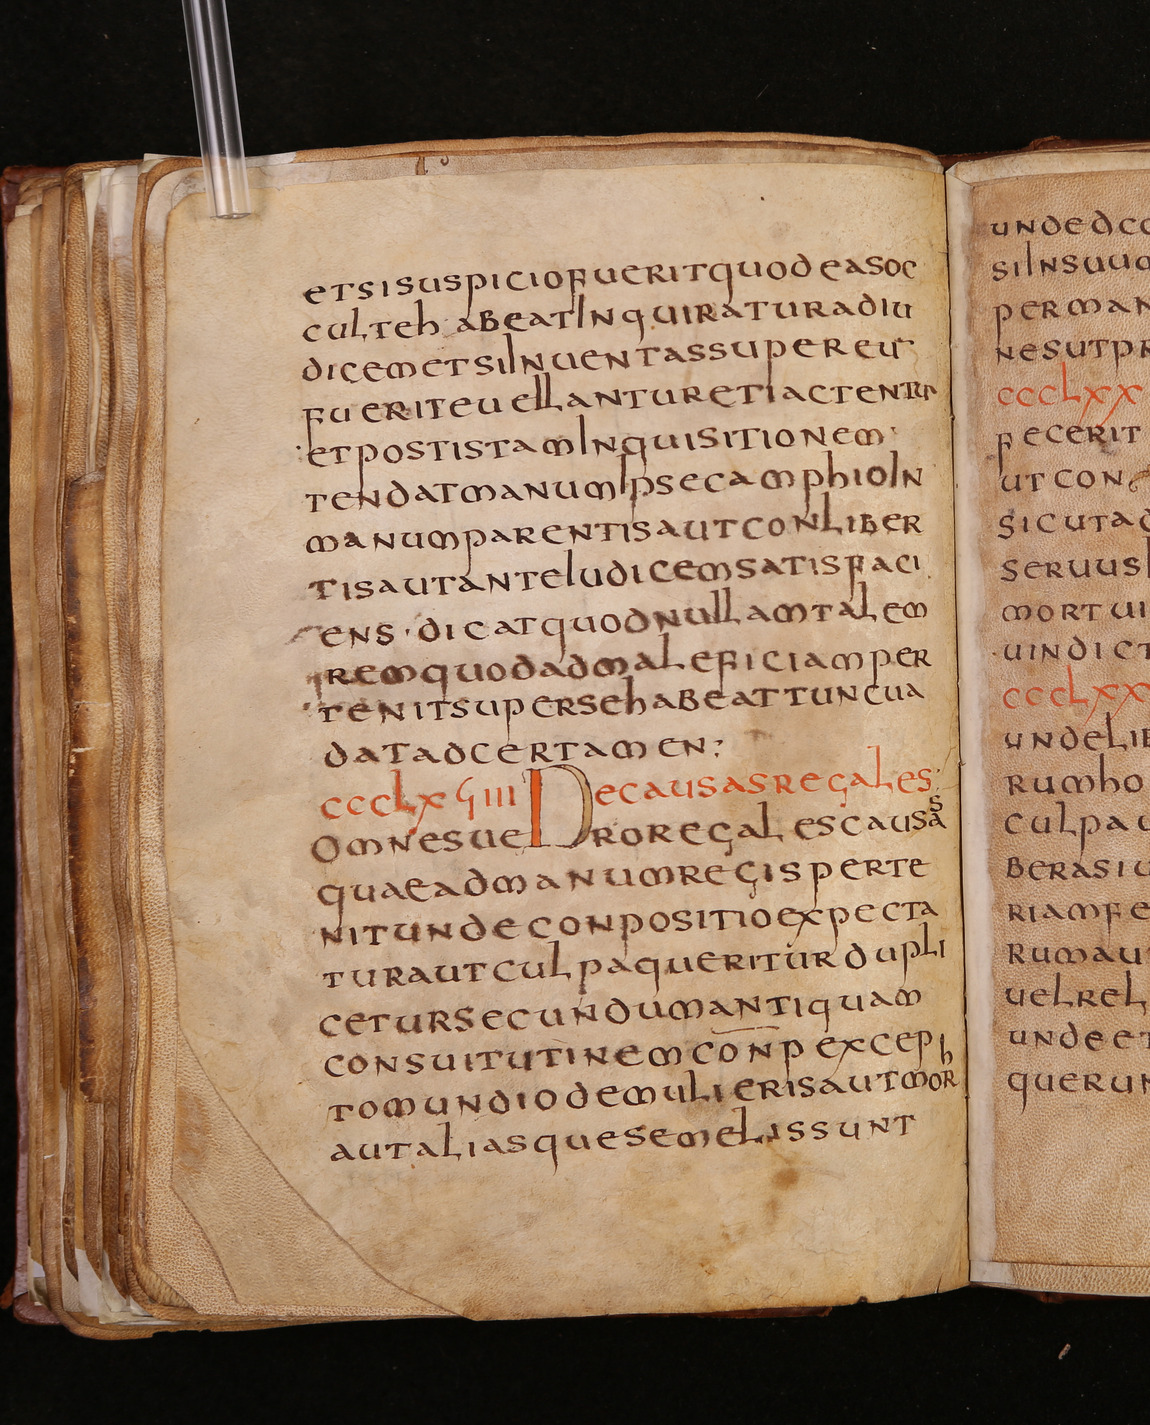 et si suspicio fuerit quod eas oc
culte habeat inquiratur ad iu
dicem et si inuentas super eu
fuerit euellantur et iactentur
et post istam inquisitionem
tendat manum ipse camphio in
manum parentis aut conliber
tis aut ante ludicem satisfaci
ens · dicat quod nullam talem
rem quod ad maleficiam per
tenit super se habeat tunc ua
dat ad certamen :
ccclxϛiiii De causas regales :
Omnes uero regales causas
quae ad manum regis perte
nit unde conpositio expecta
tur aut culpa queritur dupli
cetur secundum antiquam
consuitutinem conp excep
to mundio de mulieris aut morh
aut alias que semelis sunt
unde dco
si insuuo
perman
nes ut pr
ccclxx
fecerit
ut con
sicut ad
seruus
mortui
uindict
ccclxx
unde lib
rum ho
culpa u
bera siu
riam fe
rum aut
uel rel
unde et
querun